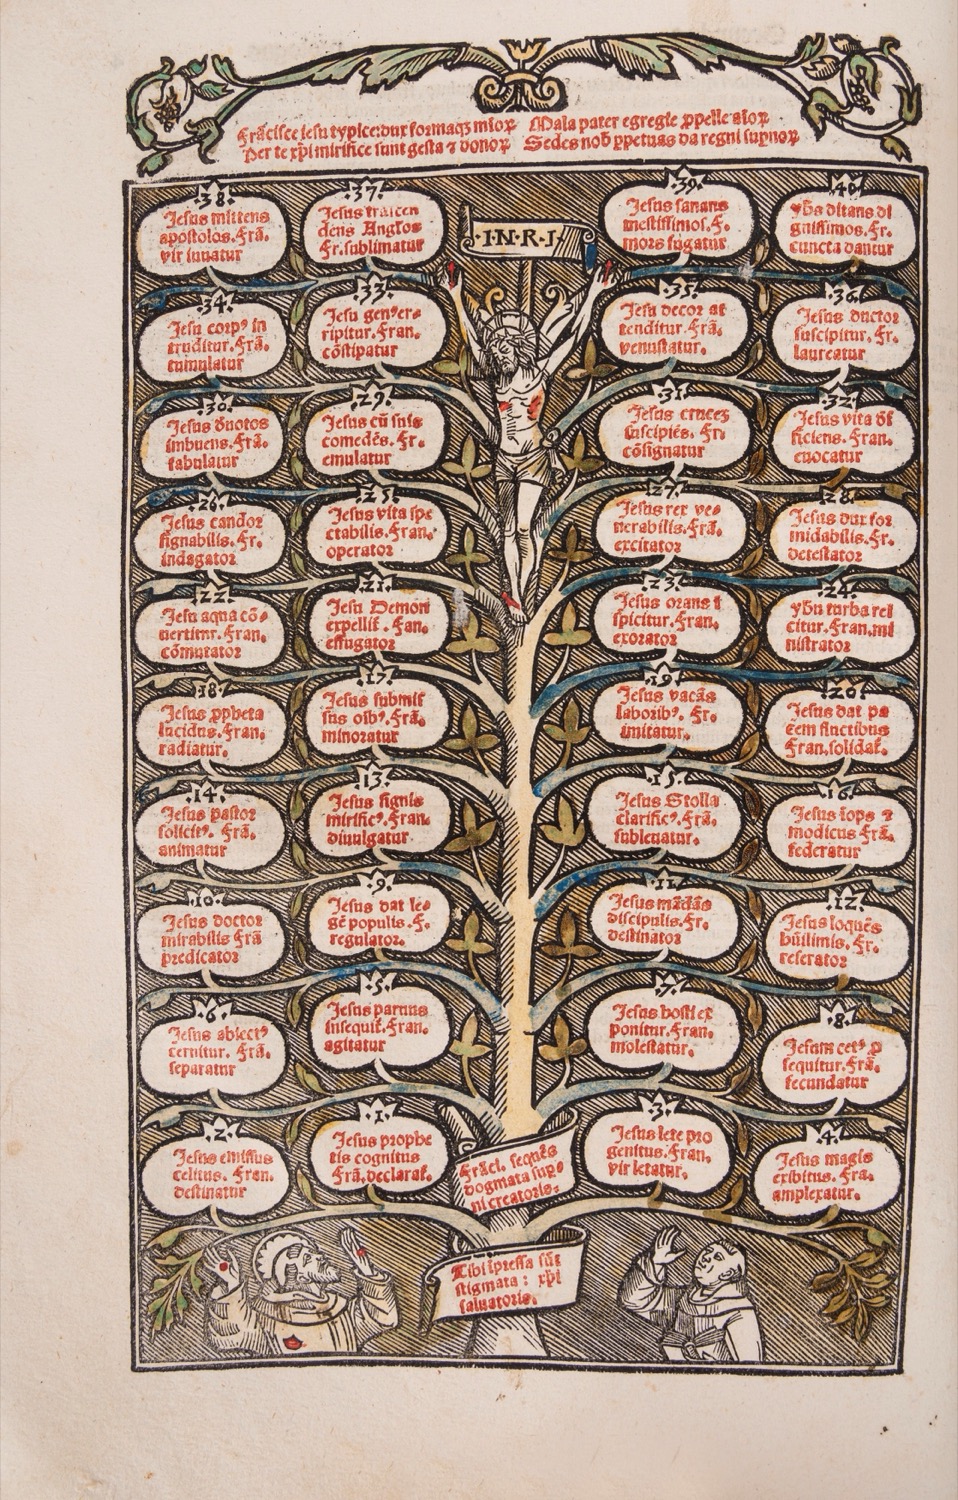 Frācisce iesu typice: dux formaqȝ mīoꝝ Mala pater egregie ꝓpelle aīoꝝ
Per te xp̄i mirifice sunt gesta ⁊ donoꝝ Sedes nob̄ ꝑpetuas da regni suꝑnoꝝ
·38·
Jesus mittens
apostolos. Frā.
vir iuuatur
·37·
Jesus trāscen
dens Anglos
Fr. sublimatur
·I·N·R·I·
·39·
Jesus sanans
mestissimos. F.
mors fugatur
·40·
yħs ditans di
gnissimos. Fr.
cuncta dantur
·34·
Jesu corpꝰ in
truditur. Frā.
tumulatur
·33·
Jesu genꝰ er-
ripitur. Fran.
cōstipatur
·35·
Jesu decor at
tenditur. Frā.
venustatur.
·36·
Jesus ductor
suscipitur. Fr.
laureatur
·30·
Jesus deuotos
imbuens. Frā.
fabulatur
·29·
Jesus cū suis
comedēs. Fr.
emulatur
·31·
Jesus cruces
suscipiēs. Fr.
cōsignatur
·32·
Jesus vita def
ficiens. Fran.
euocatur
·26·
Jesus candor
signabilis. Fr.
indagator
·25·
Jesus vita spe
ctabilis. Fran.
operator
·27·
Jesus rex ve-
nerabilis. Frā.
excitator
·28·
Jesus dux for
midabilis. Fr.
detestator
·22·
Jesu aqua cō-
uertitur. Fran.
cōmutator
·21·
Jesu Demon
expellit. Fan.
effugator
·23·
Jesus orans ī
spicitur. Fran.
exorator
·24·
yħu turba rei
citur. Fran. mi
nistrator
·18·
Jesus ꝓpheta
lucidus. Fran.
radiatur.
·17·
Jesus submis
sus oībꝰ. Frā.
minoratur
·19·
Jesus vacās
laboribꝰ. Fr.
imitatur.
·20·
Jesus dat pa
cem fluctibus
Fran. solidat.
·14·
Jesus pastor
solicitꝰ. Frā.
animatur
·13·
Jesus signis
mirificꝰ. Fran.
diuulgatur
·15·
Jesus Stolla
clarificꝰ. Frā.
subleuatur.
·16·
Jesus īops ⁊
modicus Frā.
federatur
·10·
Jesus doctor
mirabilis Frā
predicator
·9·
Jesus dat le-
gē populis. F.
regulator.
·11·
Jesus mādās
discipulis. Fr.
destinator
·12·
Jesus loquēs
hūilimis. Fr.
reserator
·6·
Jesus abiectꝰ
cernitur. Frā.
separatur
·5·
Jesus paruus
insequit. Fran.
agitatur
·7·
Jesus hosti ex
ponitur. Fran.
molestatur.
·8·
Jesum cetꝰ ꝓ
sequitur. Frā.
fecundatur
·2·
Jesus emissus
celitus. Fran.
destinatur
·1·
Jesus prophe
tis cognitus
Frā. declarat.
·3·
Jesus lete pro
genitus. Fran.
vir letatur.
·4·
Jesus magis
exibitus. Fra.
amplexatur.
Frāci. sequēs
dogmata suꝑ-
ni creatoris.
Tibi īpressa sūt
stigmata: xp̄i
saluatoris.